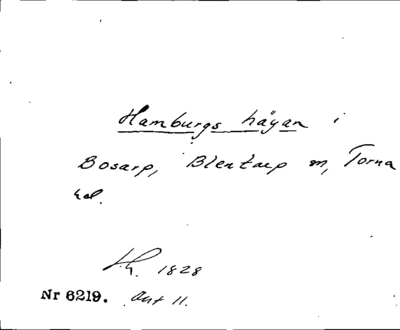 Hamburgs hägan i
Bosarp, Blentarp sn, Torna
hd.
Lh. 1828
Nr 6219. Ant 11.